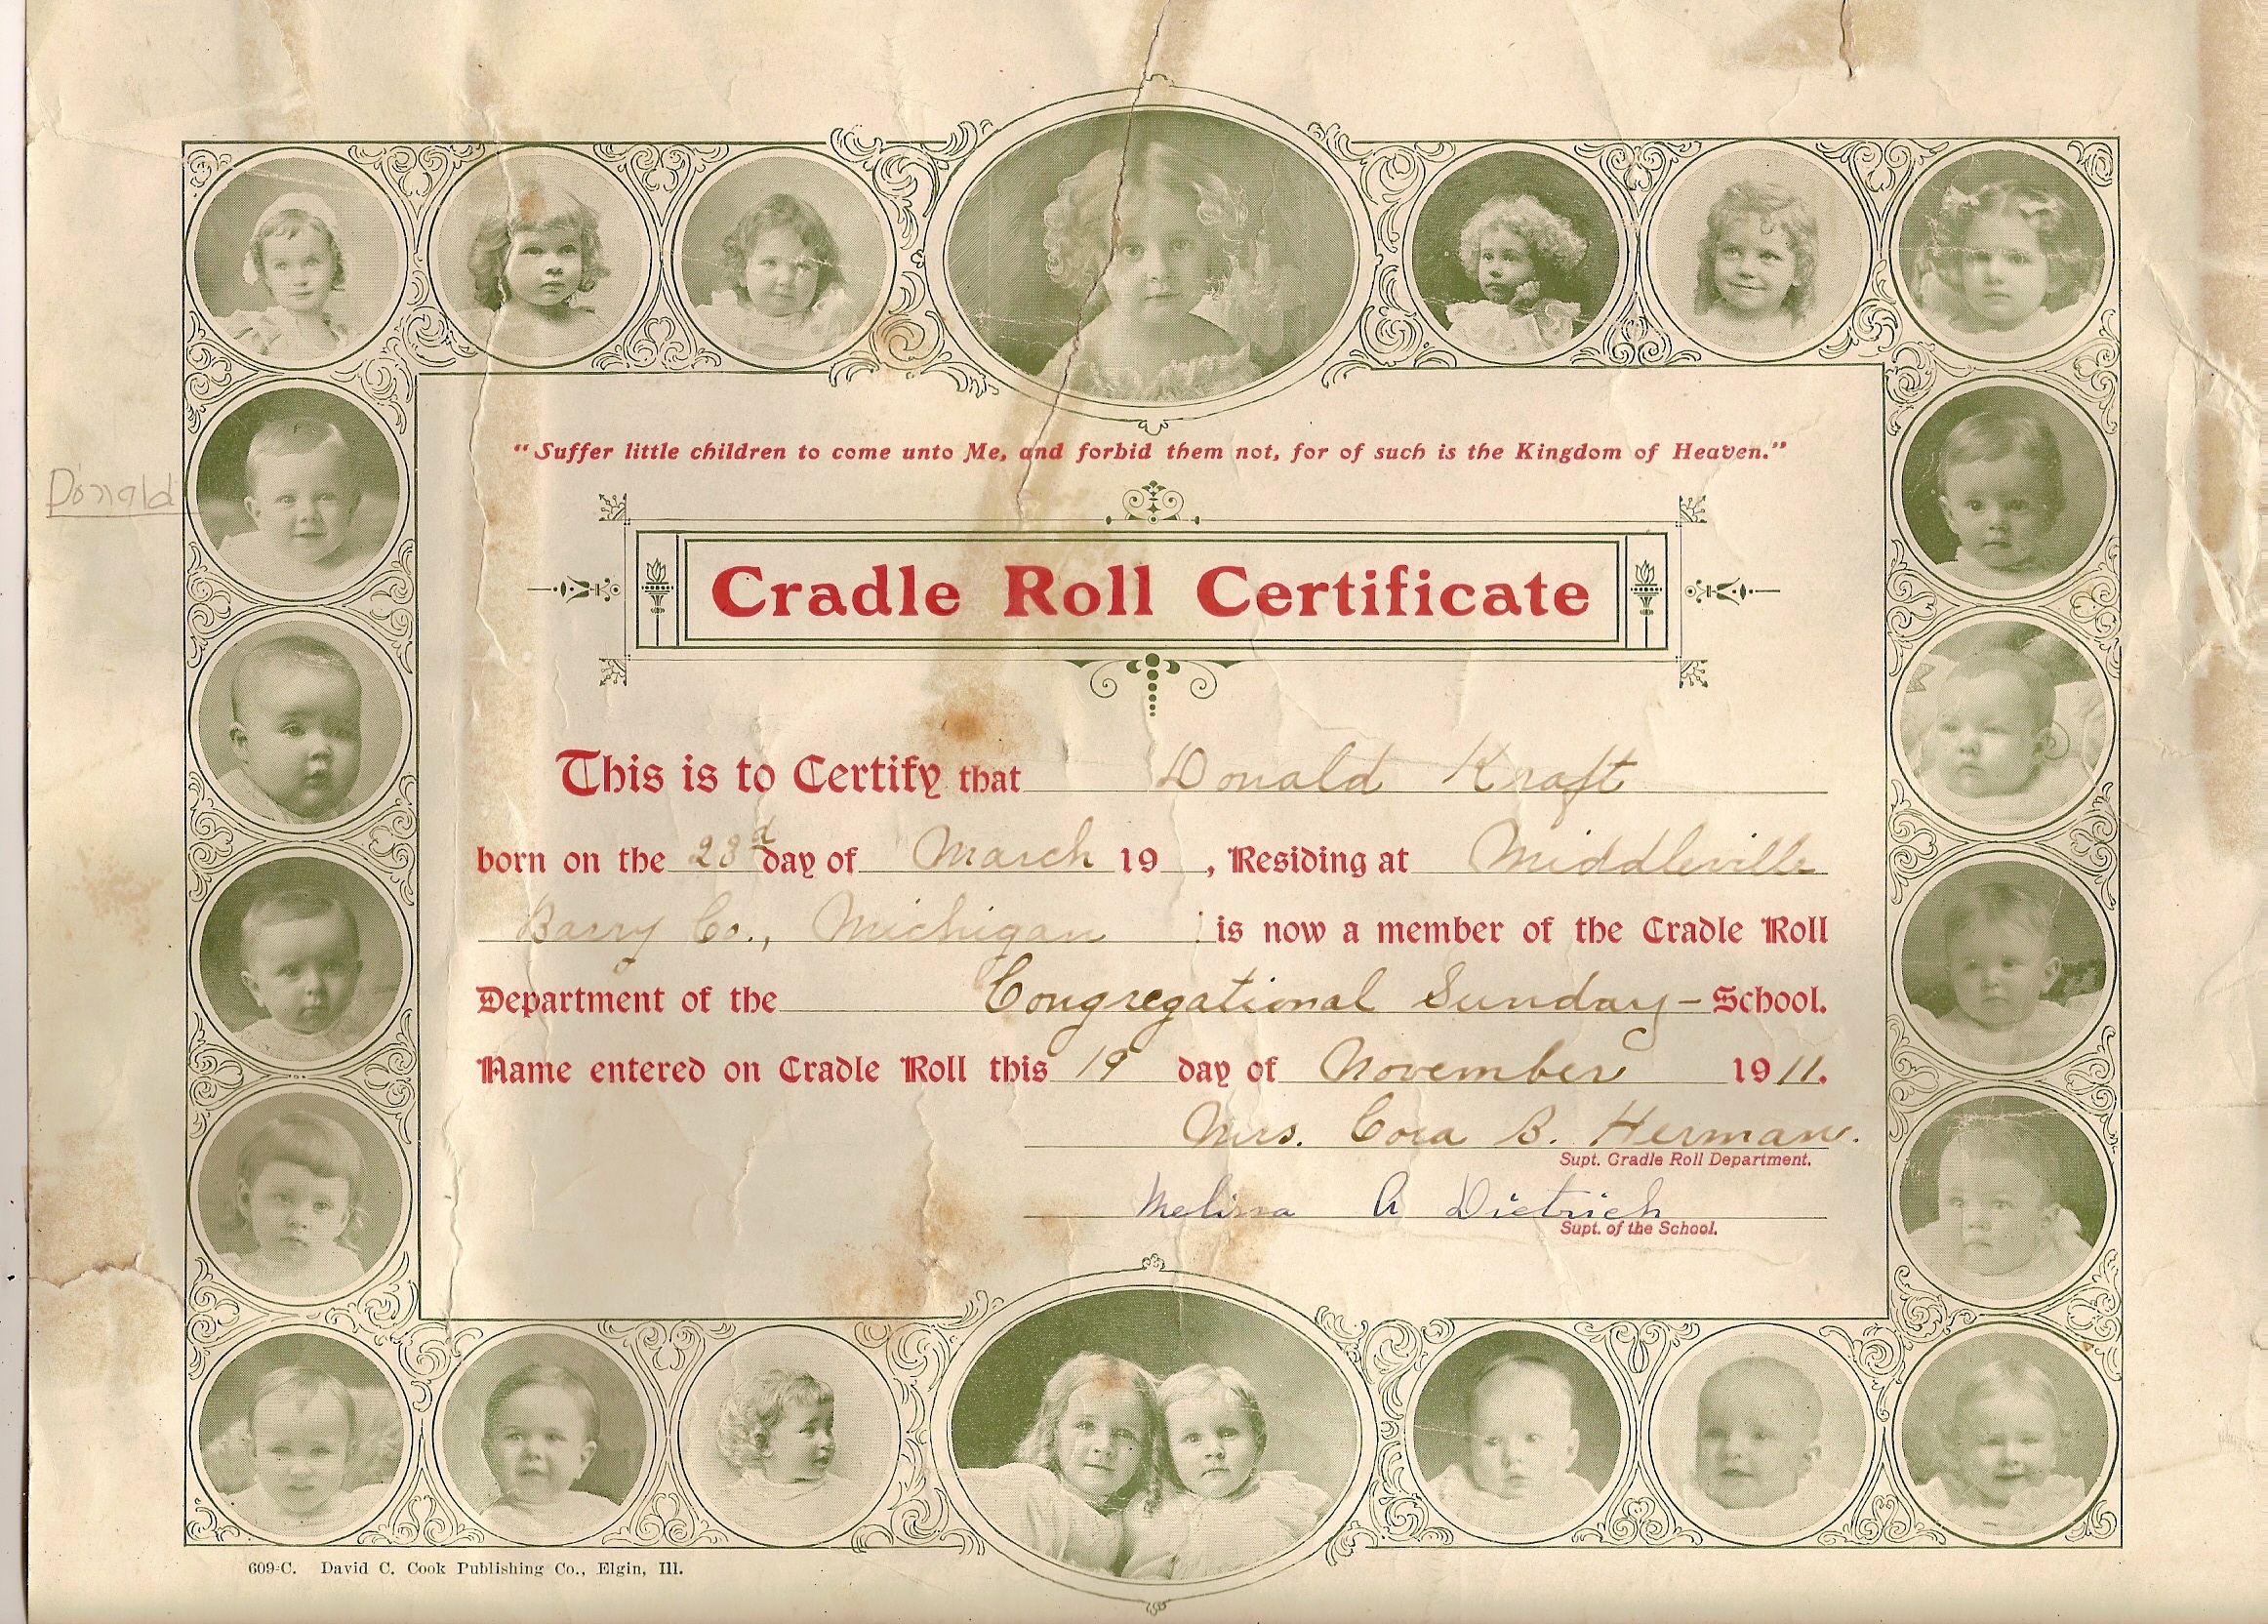 "Suffer little children to come unto Me, and forbid them not, for of such is the Kingdom of Heaven."
Donald
Cradle Roll Certificate
This is to Certify that Donald Kraft
born on the 23d day of March 19 , Residing at Middleville
Barry Co., Michigan is now a member of the Cradle Roll
Department of the Congregational Sunday-School.
Name entered on Cradle Roll this 19 day of November 1911.
Mrs. Cora B. Herman.
Supt. Cradle Roll Department.
Melissa A Dietrich
Supt. of the School.
609-C. David C. Cook Publishing Co., Elgin, Ill.